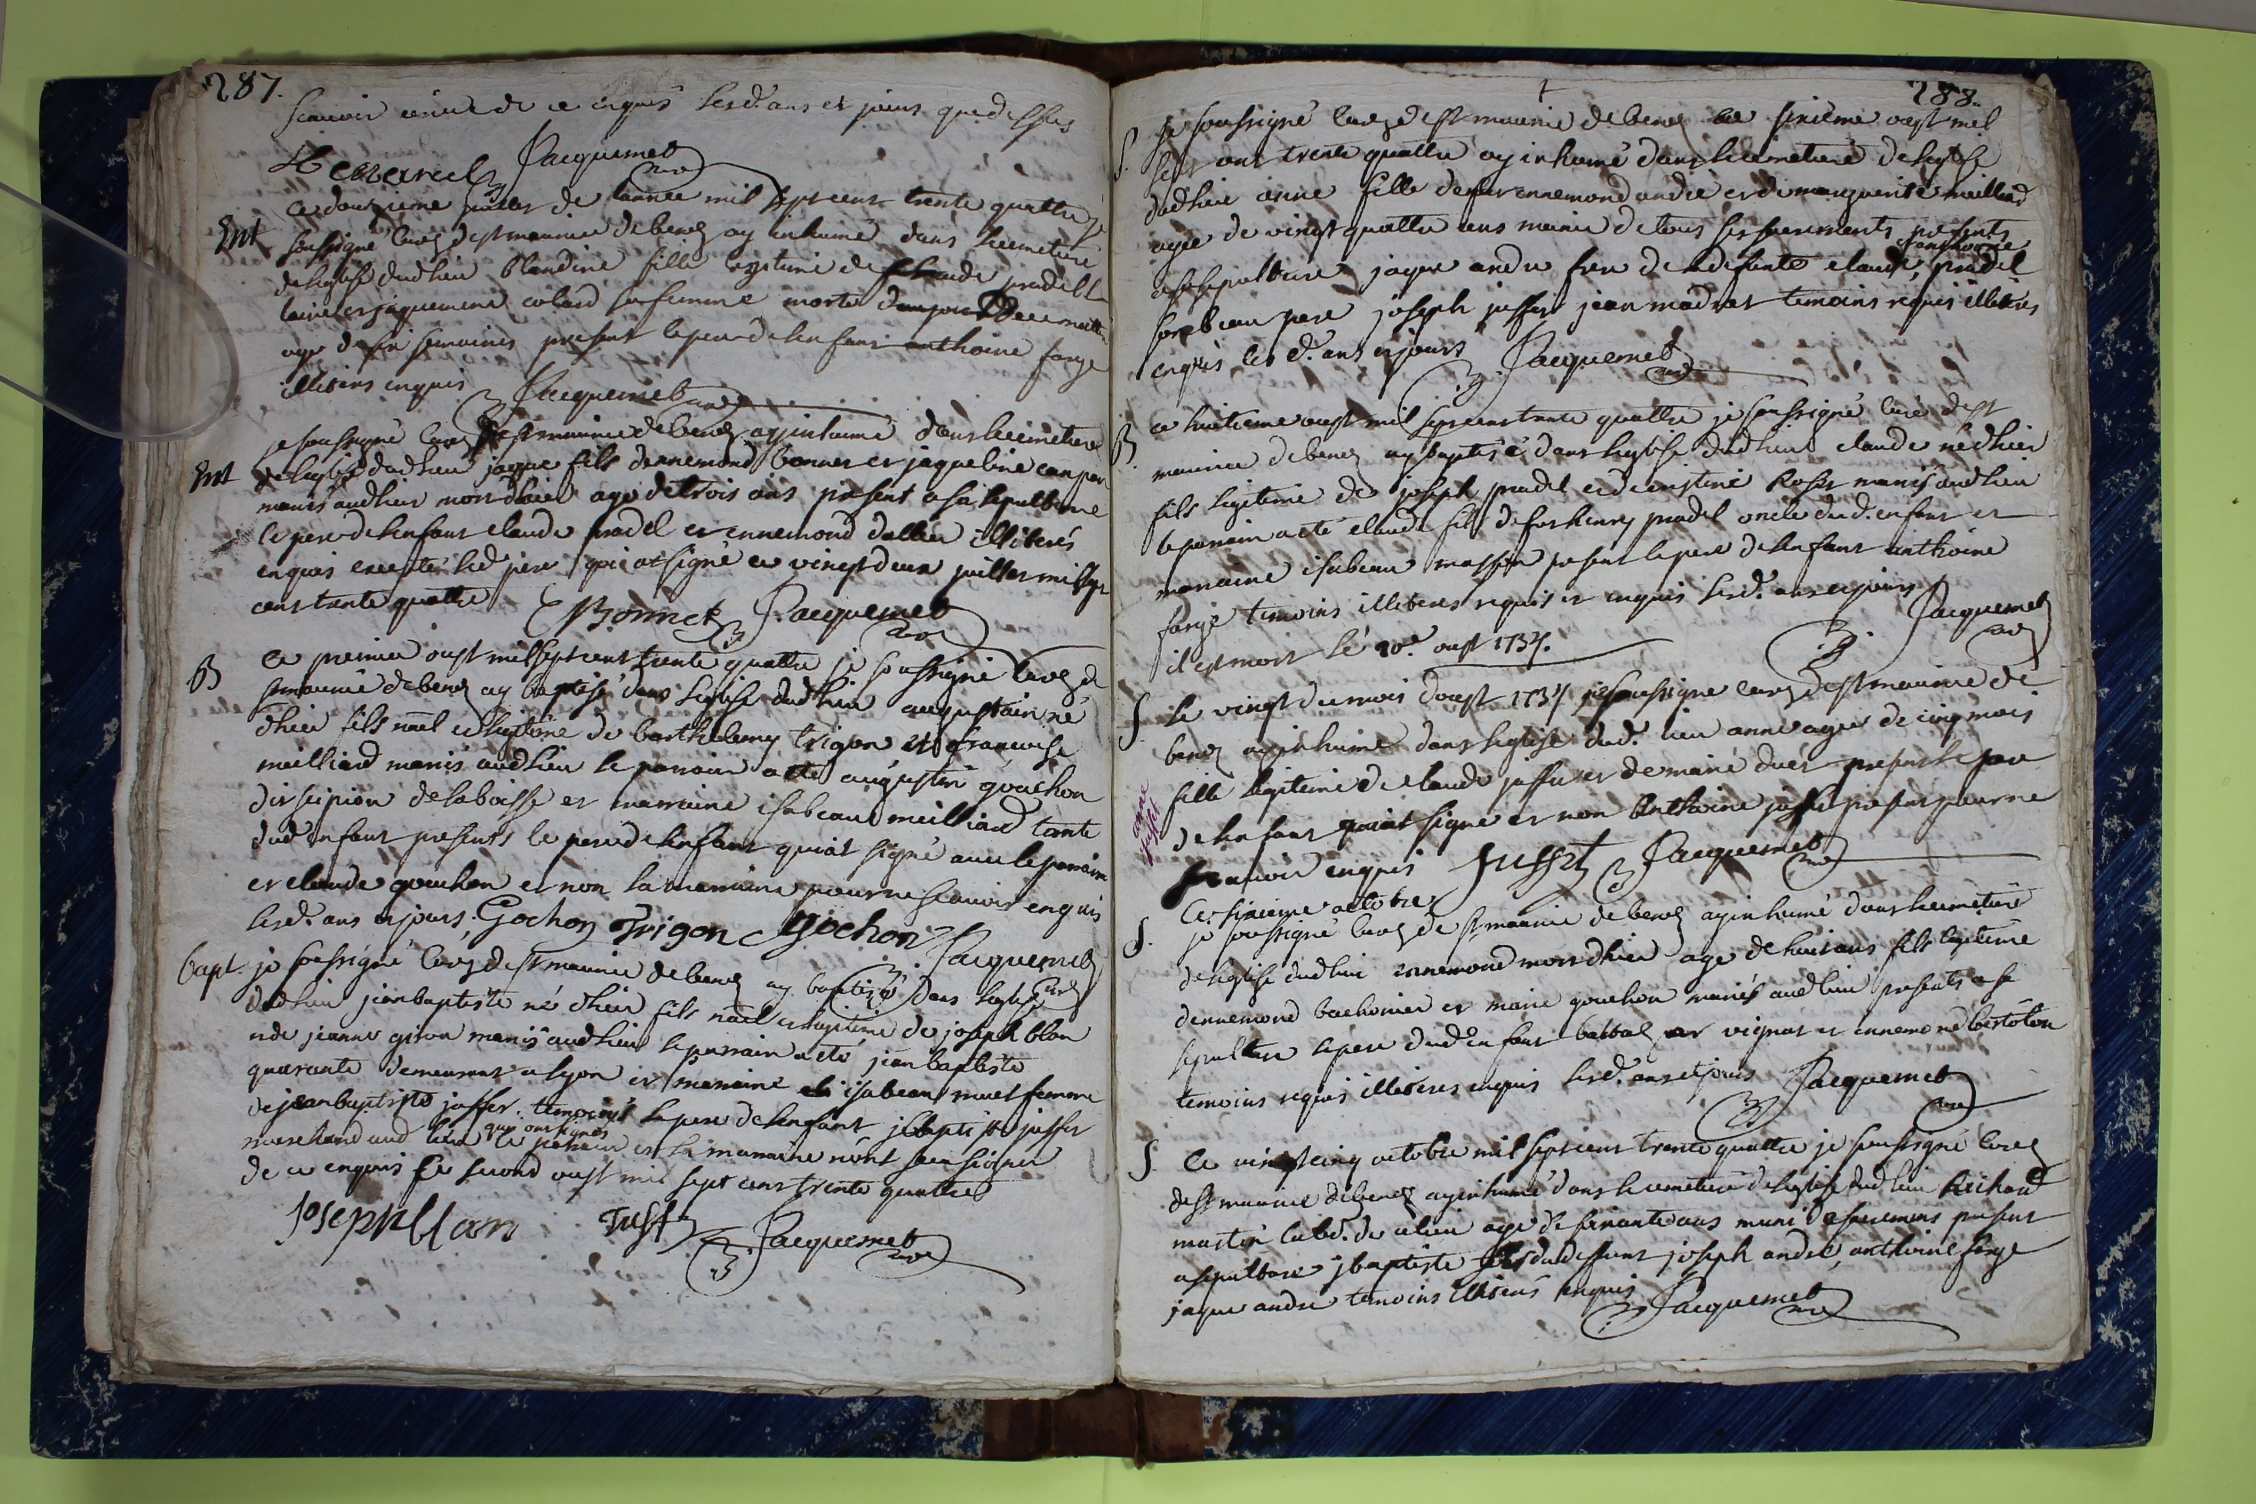 287.
scauoir ecrire de ce enquis lesd. ans et jours que dessus
Jacquemet curé
ce douzieme juillet de lannée mil sept cent trente quattre je
Ent soussigné curé de st maurice de benoz ay inhumé dans le cimetiere
de leglise dud lieu blandine fille legitime de claude pradel
et jaquemine colard sa femme morte
age de six semaines present le pere de lenfant anthoine farge
illiterés enquis Jacquemet curé
je soussigné curé de st maurice de benoz ay inhumé dans le cimetiere
Ent de leglise dud lieu jaque fils dennemond bonnet et jaqueline
mariés aud lieu mort dhier agé de trois ans present a sa sepulture
le pere de lenfant claude pradel et ennemond dallier illiterés
enquis excepté led pere qui at signé ce vingt deux juillet mil sept
cent trente quattre Bonnet Jacquemet curé
B ce premier oust mil sept cent trente quattre je soussigné curé de
st maurice de benoz ay baptisé dans leglise dud lieu augustain né
dhier fils naël et legitime de barthelemy trigon et francoise
meilliard mariés aud lieu le parrain a eté augustin gouchon
de la boisse et marraine isabeau meilliard tante
dud enfant presents le pere de lenfant qui at signé avec le parrain
et claude gouchon et non la marraine pour ne scauoir enquis
lesd. ans et jours. Gochon Trigon Gochon Jacquemet curé
bapt. je soussigné curé de st maurice de benoz ay baptizé dans leglise
dud lieu jean baptiste né dhier fils naël et legitime de joseph blan
et de jeanne giron mariés aud lieu le parrain a eté jean baptiste
quarante demeurant a lyon et marraine isabeau muet femme
de jean baptiste jusset. temoins le pere de lenfant j baptiste jusset
marchand aud lieu qui ont signés le parrain et la marraine nont sceu signer
de ce enquis ce second oust mil sept cent trente quattre
Joseph blan Jusset Jacquemet curé
288.
je soussigné curé de st maurice de benoz ce sixieme oust mil
S. sept cent trente quattre ay inhumé dans le cimetiere de leglise
dud lieu anne fille de feu ennemond andré et de marguerite meilliard
agée de vingt quattre ans munie de tous ses sacrements presents
a sa sepulture jaque andre frere de la defunte claude pradel
son beau pere joseph jusset jean madret temoins requis illiterés
enquis les d. ans et jours Jacquemet curé
B. ce huitieme oust mil sept cent trente quattre je soussigné curé de st
maurice de benoz ay baptisé dans leglise dud lieu claude né dhier
fils legitime de joseph pradel et de cristine Roset mariés aud lieu
le parrain a eté claude fils de feu henry pradel oncle dud. enfant et
marraine isabeau masson present le pere de lenfant anthoine
farge temoins illiterés requis et enquis lesd. ans et jours
Jacquemet curé
il est mort le 20e. oust 1734.
S. le vingt du mois d'oust 1734 je soussigné curé de st maurice de
benoz ay inhumé dans leglise dud. lieu anne agée de cinq mois
fille legitime de claude jusset et de marie duet present le pere
de lenfant qui at signé et non Anthoine jusset present pour ne
anne jusset
scauoir enquis Jusset Jacquemet curé
ce sixieme octobre
S. je soussigné curé de st maurice de benoz ay inhumé dans le cimetiere
de leglise dud lieu ennemond mort dhier agé de huit ans fils legitime
dennemond bachonier et marie gouchon mariés aud lieu presents a sa
sepulture le pere dud enfant vignat et ennemond bertolon
temoins requis illiterés enquis lesd. ans et jours Jacquemet curé
S. ce vingt cinq octobre mil sept cent trente quattre je soussigné curé
de st maurice de benoz ay inhumé dans le cimetiere de leglise dud lieu
martin de ce lieu agé de ans muni de sacremens present
a sepulture j baptiste fils dud deffunt joseph andre, anthoine farge
jaque andre temoins illiterés enquis Jacquemet curé